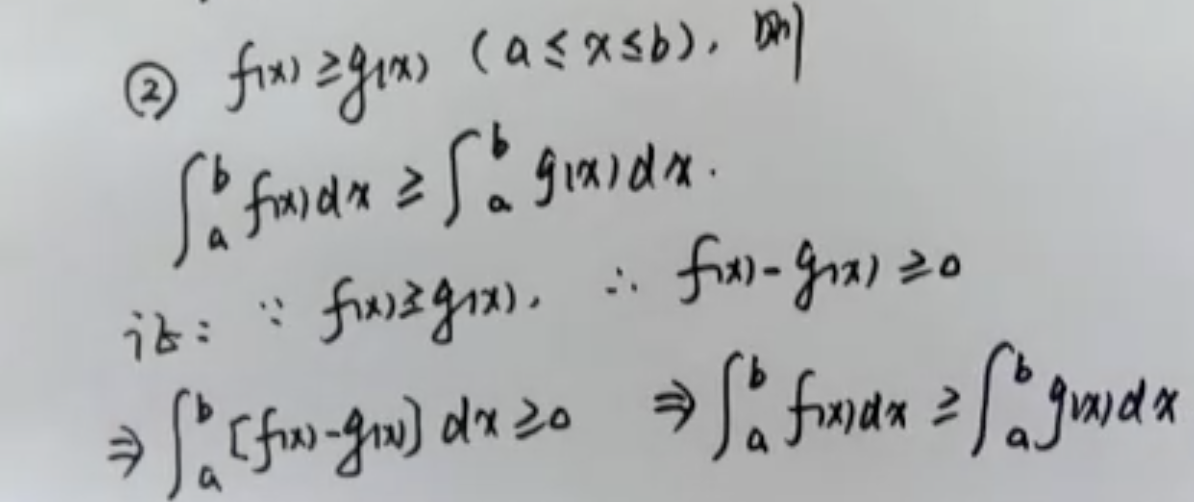 ② f(x) ≥ g(x) (a ≤ x ≤ b), 则
∫_a^b f(x)dx ≥ ∫_a^b g(x)dx.
证: ∵ f(x) ≥ g(x), ∴ f(x) - g(x) ≥ 0
⇒ ∫_a^b [f(x) - g(x)] dx ≥ 0 ⇒ ∫_a^b f(x)dx ≥ ∫_a^b g(x)dx